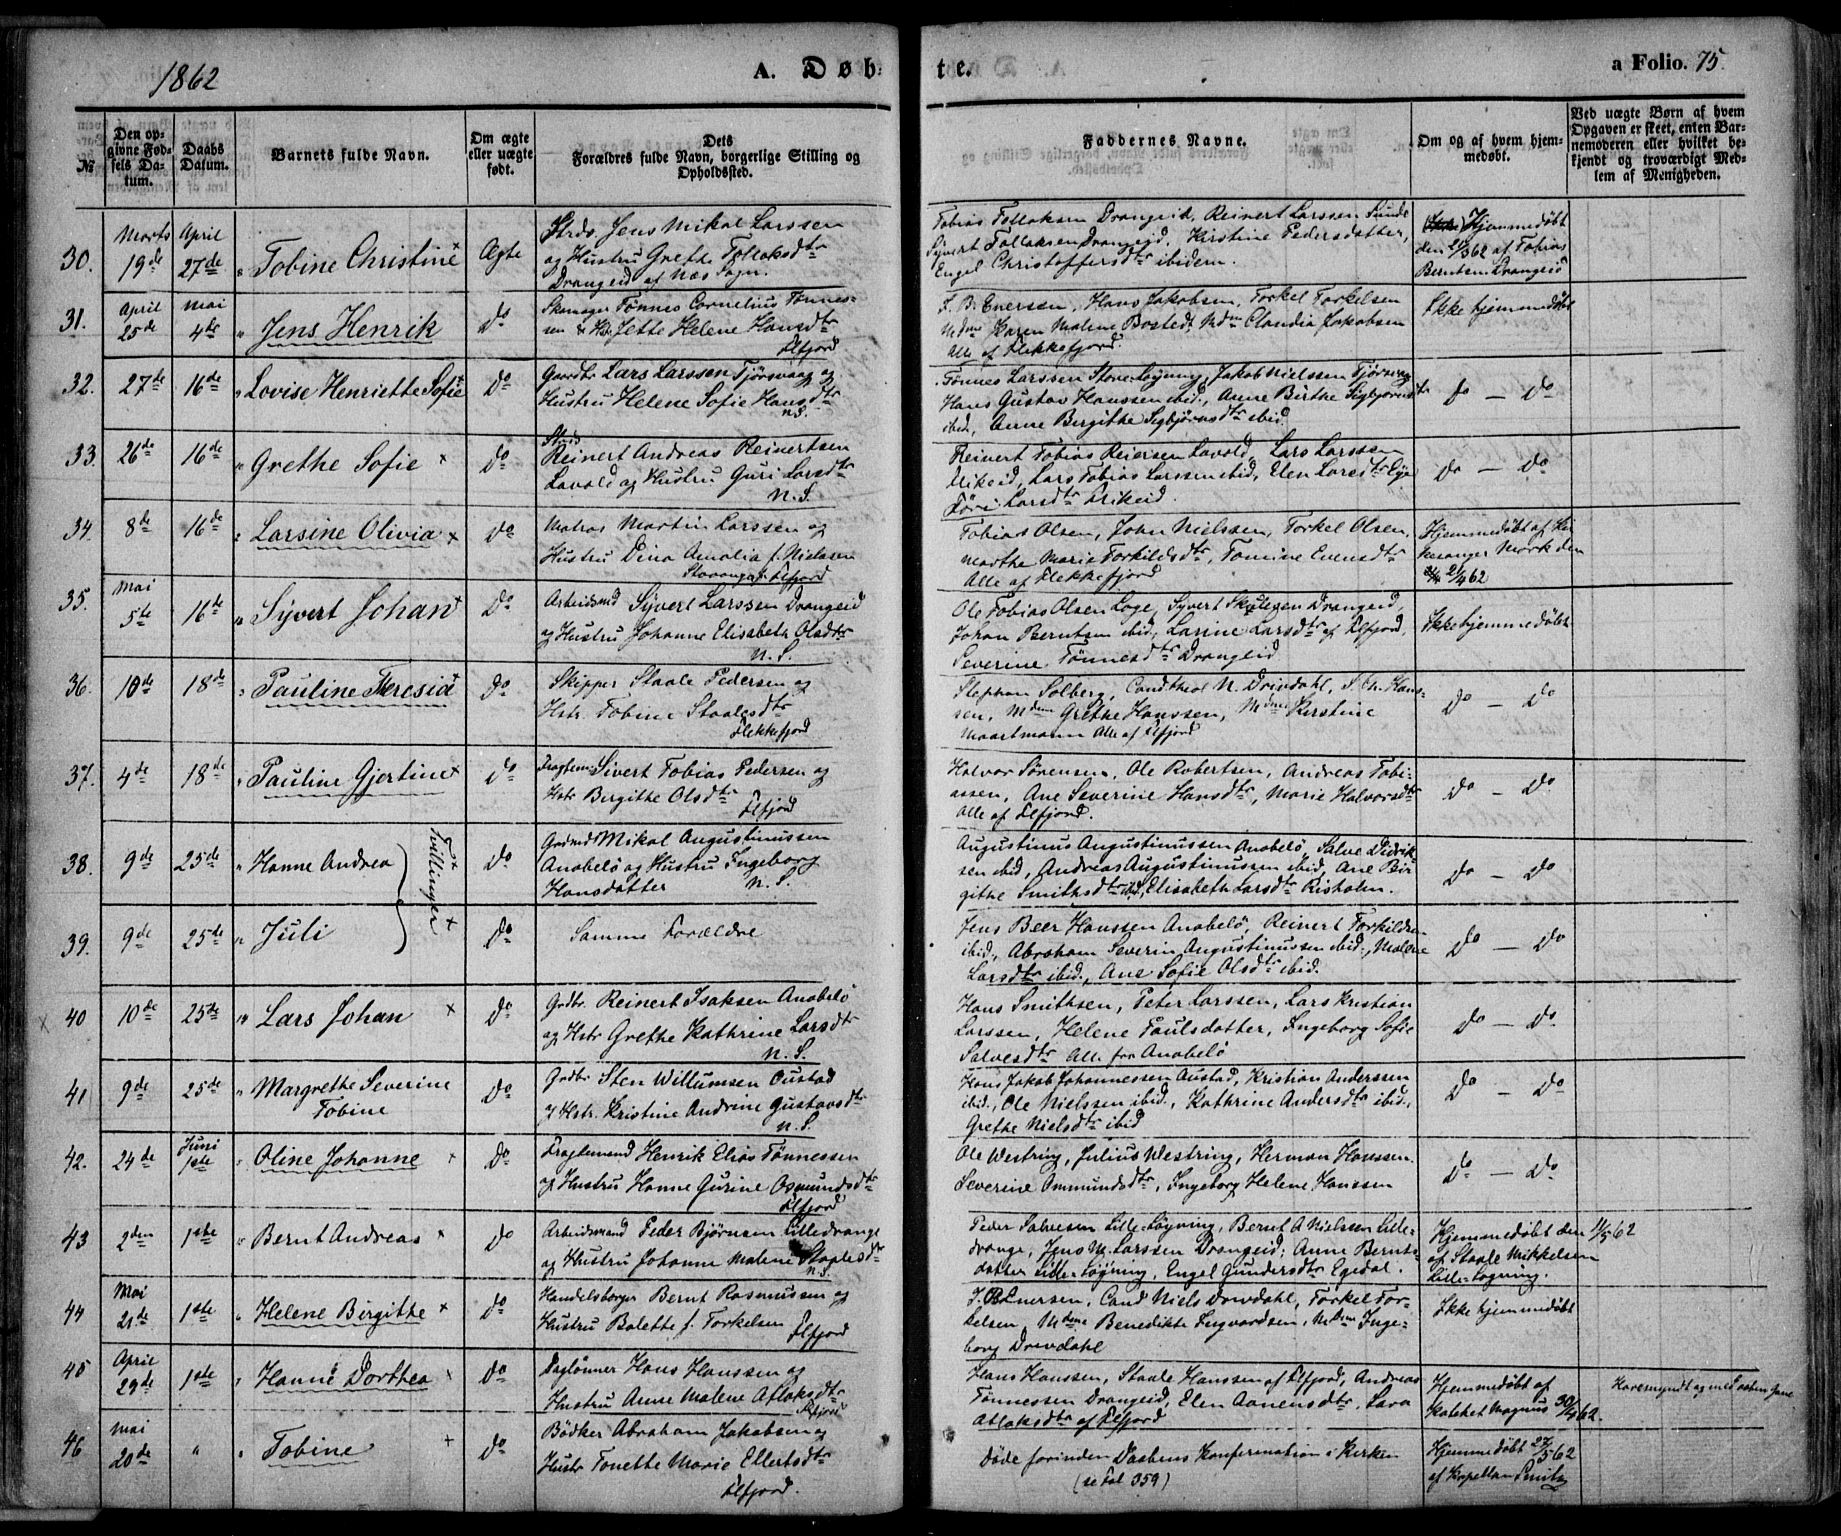 1862
A. Døb-
te.
a Folio. 75.
№
Den op-
givne Fød-
sels Da-
tum.
Daabs
Datum.
Barnets fulde Navn.
Om ægte
eller uægte
født.
Dets
Forældres fulde Navn, borgerlige Stilling og
Opholdssted.
Faddernes Navne.
Om og af hvem hjem-
medøbt.
Ved uægte Børn af hvem
Opgaven er skeet, enten Bar-
nemoderen eller hvilket be-
kjendt og troværdigt Med-
lem af Menigheden.
30.
Marts
19de
April
27de
Tobine Christine
Ægte
Strds. Jens Mikal Larssen
og Hustru Grethe Tollaksdtr
Drangeid af Næs Sogn.
Tobias Tollaksen Drangeid, Reinert Larssen Sunde
Syvert Tollaksen Drangeid, Kirstine Pedersdatter,
Engel Christoffersdtr ibidem.
Hjemmedøbt
den 21/3 62 af Tobias
Berntsen Drangeid
31.
April
25de
Mai
4de
Jens Henrik
Do
Skomager Tønnes Cornelius Tønnes-
sen & Hstr Jette Helene Hansdtr
Flfjord
J. B. Enersen, Hans Jakobsen, Torkel Torkelsen
Mdme Karen Malene Bosted, Mdm Claudia Jakobsen
Alle af Flekkefjord.
Ikke hjemmedøbt
32.
27de
16de
Lovise Henriette Sofie
Do
Gaardbr Lars Larssen Tjørsvaag og
Hustru Helene Sofie Hansdtr
N.S.
Tønnes Larssen Store-Løgning, Jakob Nielssen Tjørsvaag
Hans Gustav Hanssen ibid., Anne Birthe Sigbjørnsdtr
ibid., Anne Birgithe Sigbjørnsdtr ibid.
Do — Do
33.
26de
16de
Grethe Sofie
Do
Strds
Reinert Andreas Reinertsen
Lavold og Hustru Guri Larsdtr
N.S.
Reinert Tobias Reiersen Lavold, Lars Larssen
Eikeid, Lars Tobias Larssen ibid, Elen Larsdtr
Larsdtr Eikeid.
Do — Do
34.
8de
16de
Larsine Olivia
Do
Matros Martin Larssen og
Hustru Dina Amalia f. Nielssen
Stavanger Flfjord
Tobias Olsen, John Nielssen, Torkel Olsen,
Marthe Marie Torkildsdtr, Tomine Evensdtr
Alle af Flekkefjord
Hjemmedøbt af
Mørk den
21/4 62
35.
Mai
5te
16de
Syvert Johan
Do
Arbeidsmd Syvert Larssen Drangeid
og Hustru Johanne Elisabeth Olsdtr
N.S.
Ole Tobias Olsen Loge, Syvert Drangeid,
Johan Berntsen ibid., Larine Larsdtr af Flfjord,
Severine Tønnesdtr Drangeid
Ikke hjemmedøbt
36.
10de
18de
Pauline Theresia
Do
Skipper Staale Pedersen og
Hstr. Tobine Staalesdtr
Flekkefjord
Stephan Solberg, Candtheol N. Drivdahl, S. Chr. Hans-
sen, Mdme Grethe Hanssen, Mdme Kirstine
Maartmann Alle af Flfjord
Do — Do
37.
4de
18de
Pauline Gjertine
Do
Fragtem: Sivert Tobias Pedersen og
Hstr Birgithe Olsdtr
Flfjord
Halvor Sørensen, Ole Robertsen, Andreas Tobi-
assen, Ane Severine Hansdtr, Marie Halvorsdtr
Alle af Flfjord.
Do — Do
38.
9de
25de
Hanne Andrea
Tvillinger
Do
Grdmd Mikal Augustinussen
Anabelø og Hustru Ingeborg
Hansdatter N.S.
Augustinus Augustinussen Anabelø, Salve Didrik-
sen ibid, Andreas Augustinussen ibid, Ane Bir
githe Smithsdtr ibid, Elisabeth Larsdtr Risholm.
Do — Do
39.
9de
25de
Juli
Do
Samme Forældre
Jens Beer Hanssen Anabelø, Reinert Torkildsen
ibid., Abraham Severin Augustinussen ibid., Malene
Larsdtr ibid., Ane Sofie Olsdtr ibid.
Do — Do
40
10de
25de
Lars Johan
Do
Grdbr. Reinert Isaksen Anabelø
og Hstr Grethe Kathrine Larsdtr
N.S.
Hans Smithsen, Peter Larssen, Lars Kristian
Larssen, Helene Paulsdatter, Ingeborg Sofie
Salvesdtr Alle fra Anabelø
Do — Do
41
9de
25de
Margrethe Severine
Tobine
Do
Grdbr Sten Willumsen Oustad
og Hstr. Kristine Andrine Gustavsdtr
N.S.
Hans Jakob Johannessen Austad, Kristian Anderssen
ibid., Ole Nielssen ibid., Kathrine Andersdtr ibid.,
Grethe Nielsdtr ibid
Do — Do
42.
24de
Juni
1ste
Oline Johanne
Do
Fragtemand Henrik Elias Tønnessen
og Hustru Hanne Gurine Osmundsdtr
Flfjord
Ole Westring, Julius Westring, Herman Hanssen.
Severine Ommundsdtr, Ingeborg Helene Hanssen
Do — Do
43
2den
1ste
Bernt Andreas
Do
Arbeidsmand Peder Bjørnsen Lilledrange
og Hustru Johanne Malene
N.S.
Peder Salvesen Lille-Løgning, Bernt A Nielssen Lille-
drange, Jens M. Larssen Drangeid, Anne Bernts-
datter Lille-Løgning, Engel Gundersdtr Egedal.
Hjemmedøbt den 11/5 62
af Staale Mikkelsen
Lille-Løgning.
44
Mai
21de
1ste
Helene Birgithe
Do
Handelsborger Bernt Rasmussen og
Hustru Bolette f. Torkelsen
Flfjord
J. B. Enersen, Cand Niels Drivdahl, Torkel Tor-
kelsen, Mdme Benedikte Ingvardsen, Mdm Inge-
borg Drivdahl
Ikke hjemmedøbt
45
April
29de
1ste
Hanne Dorthea
Do
Daglønner Hans Hanssen og
Hustru Anne Malene Atlaksdtr
Flfjord
Hans Hanssen, Staale Hanssen af Flfjord, Andreas
Tønnessen Drangeid, Elen Aanensdtr, Sara
Atlaksdtr af Flfjord
Hjemmedøbt af
Katehet Magnus 30/4 62.
46
Mai
20de
"
Tobine
Do
Bødker Abraham Jakobsen og
Hustr Tonette Marie Ellertsdtr
Flfjord.
Døde forinden Daabens Konfirmation i Kirken
(se Fol 359)
Hjemmedøbt 27/5 62
af Kapellan Smith